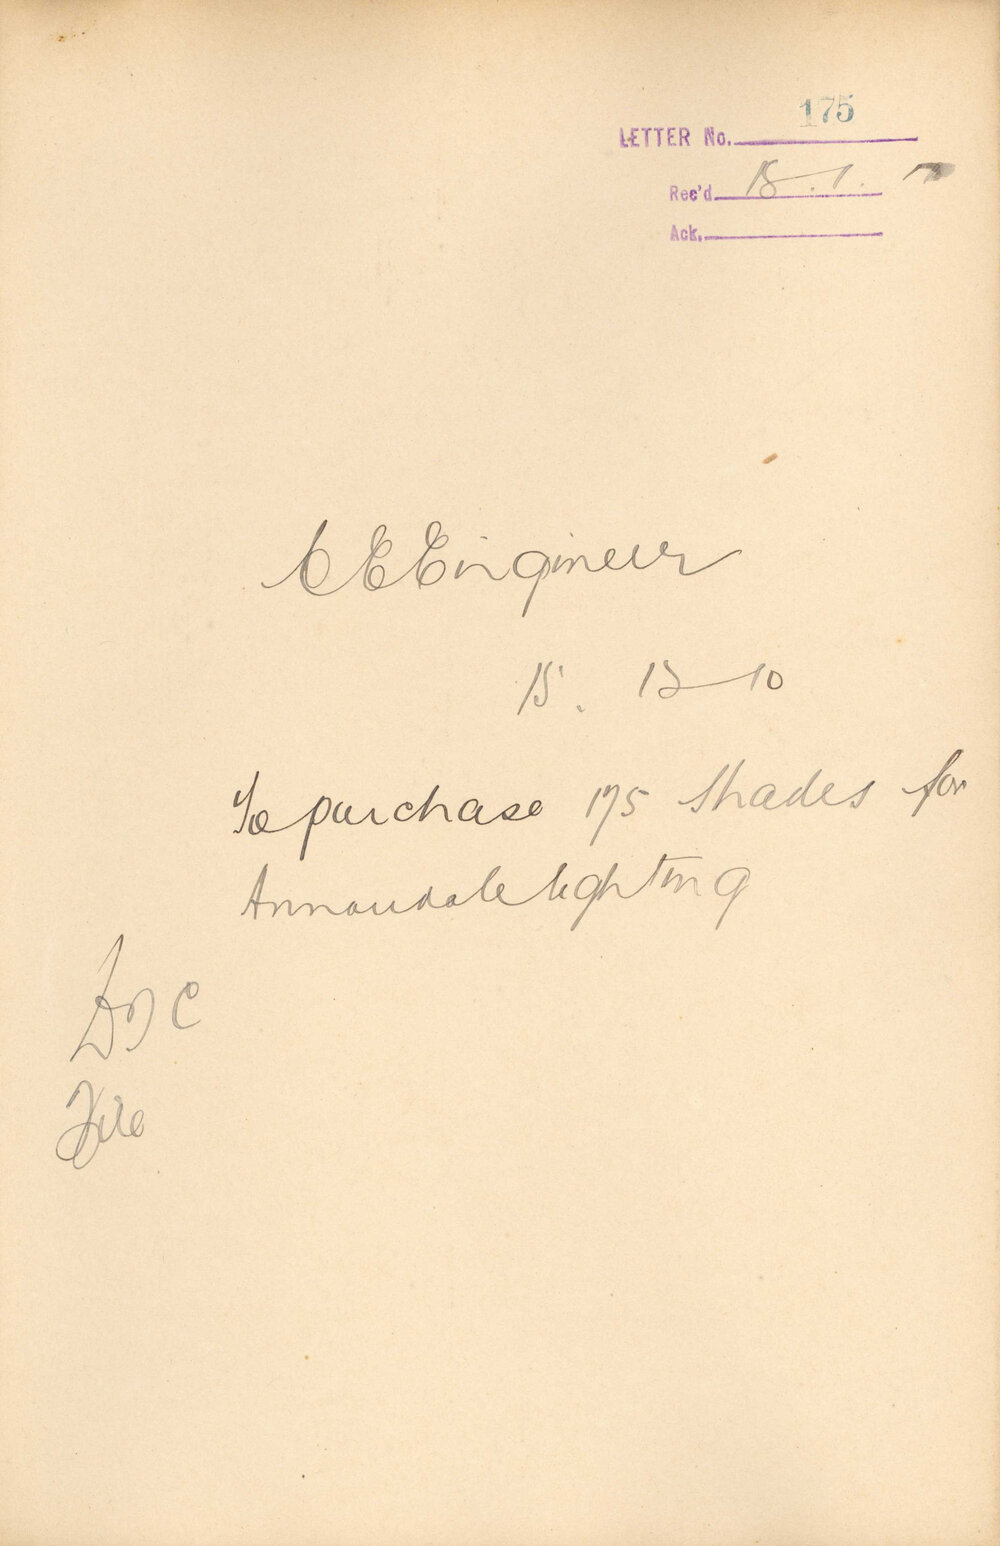 LETTER No. 175
Rec'd 18.1.
Ack.
C E Engineer
15. 12 10
To purchase 175 Shades for
Annandale lighting
File